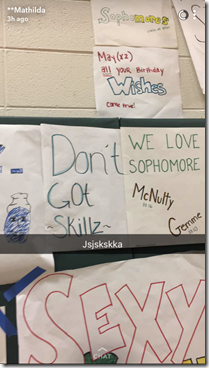 **Mathilda
3h ago
Sophomores
May(xz)
all your Birthday
Wishes
come true!
Don't
Got
~Skillz~
WE LOVE
SOPHOMORE
McNulty
Gemme
Jsjskskka
SEXY
CHAT